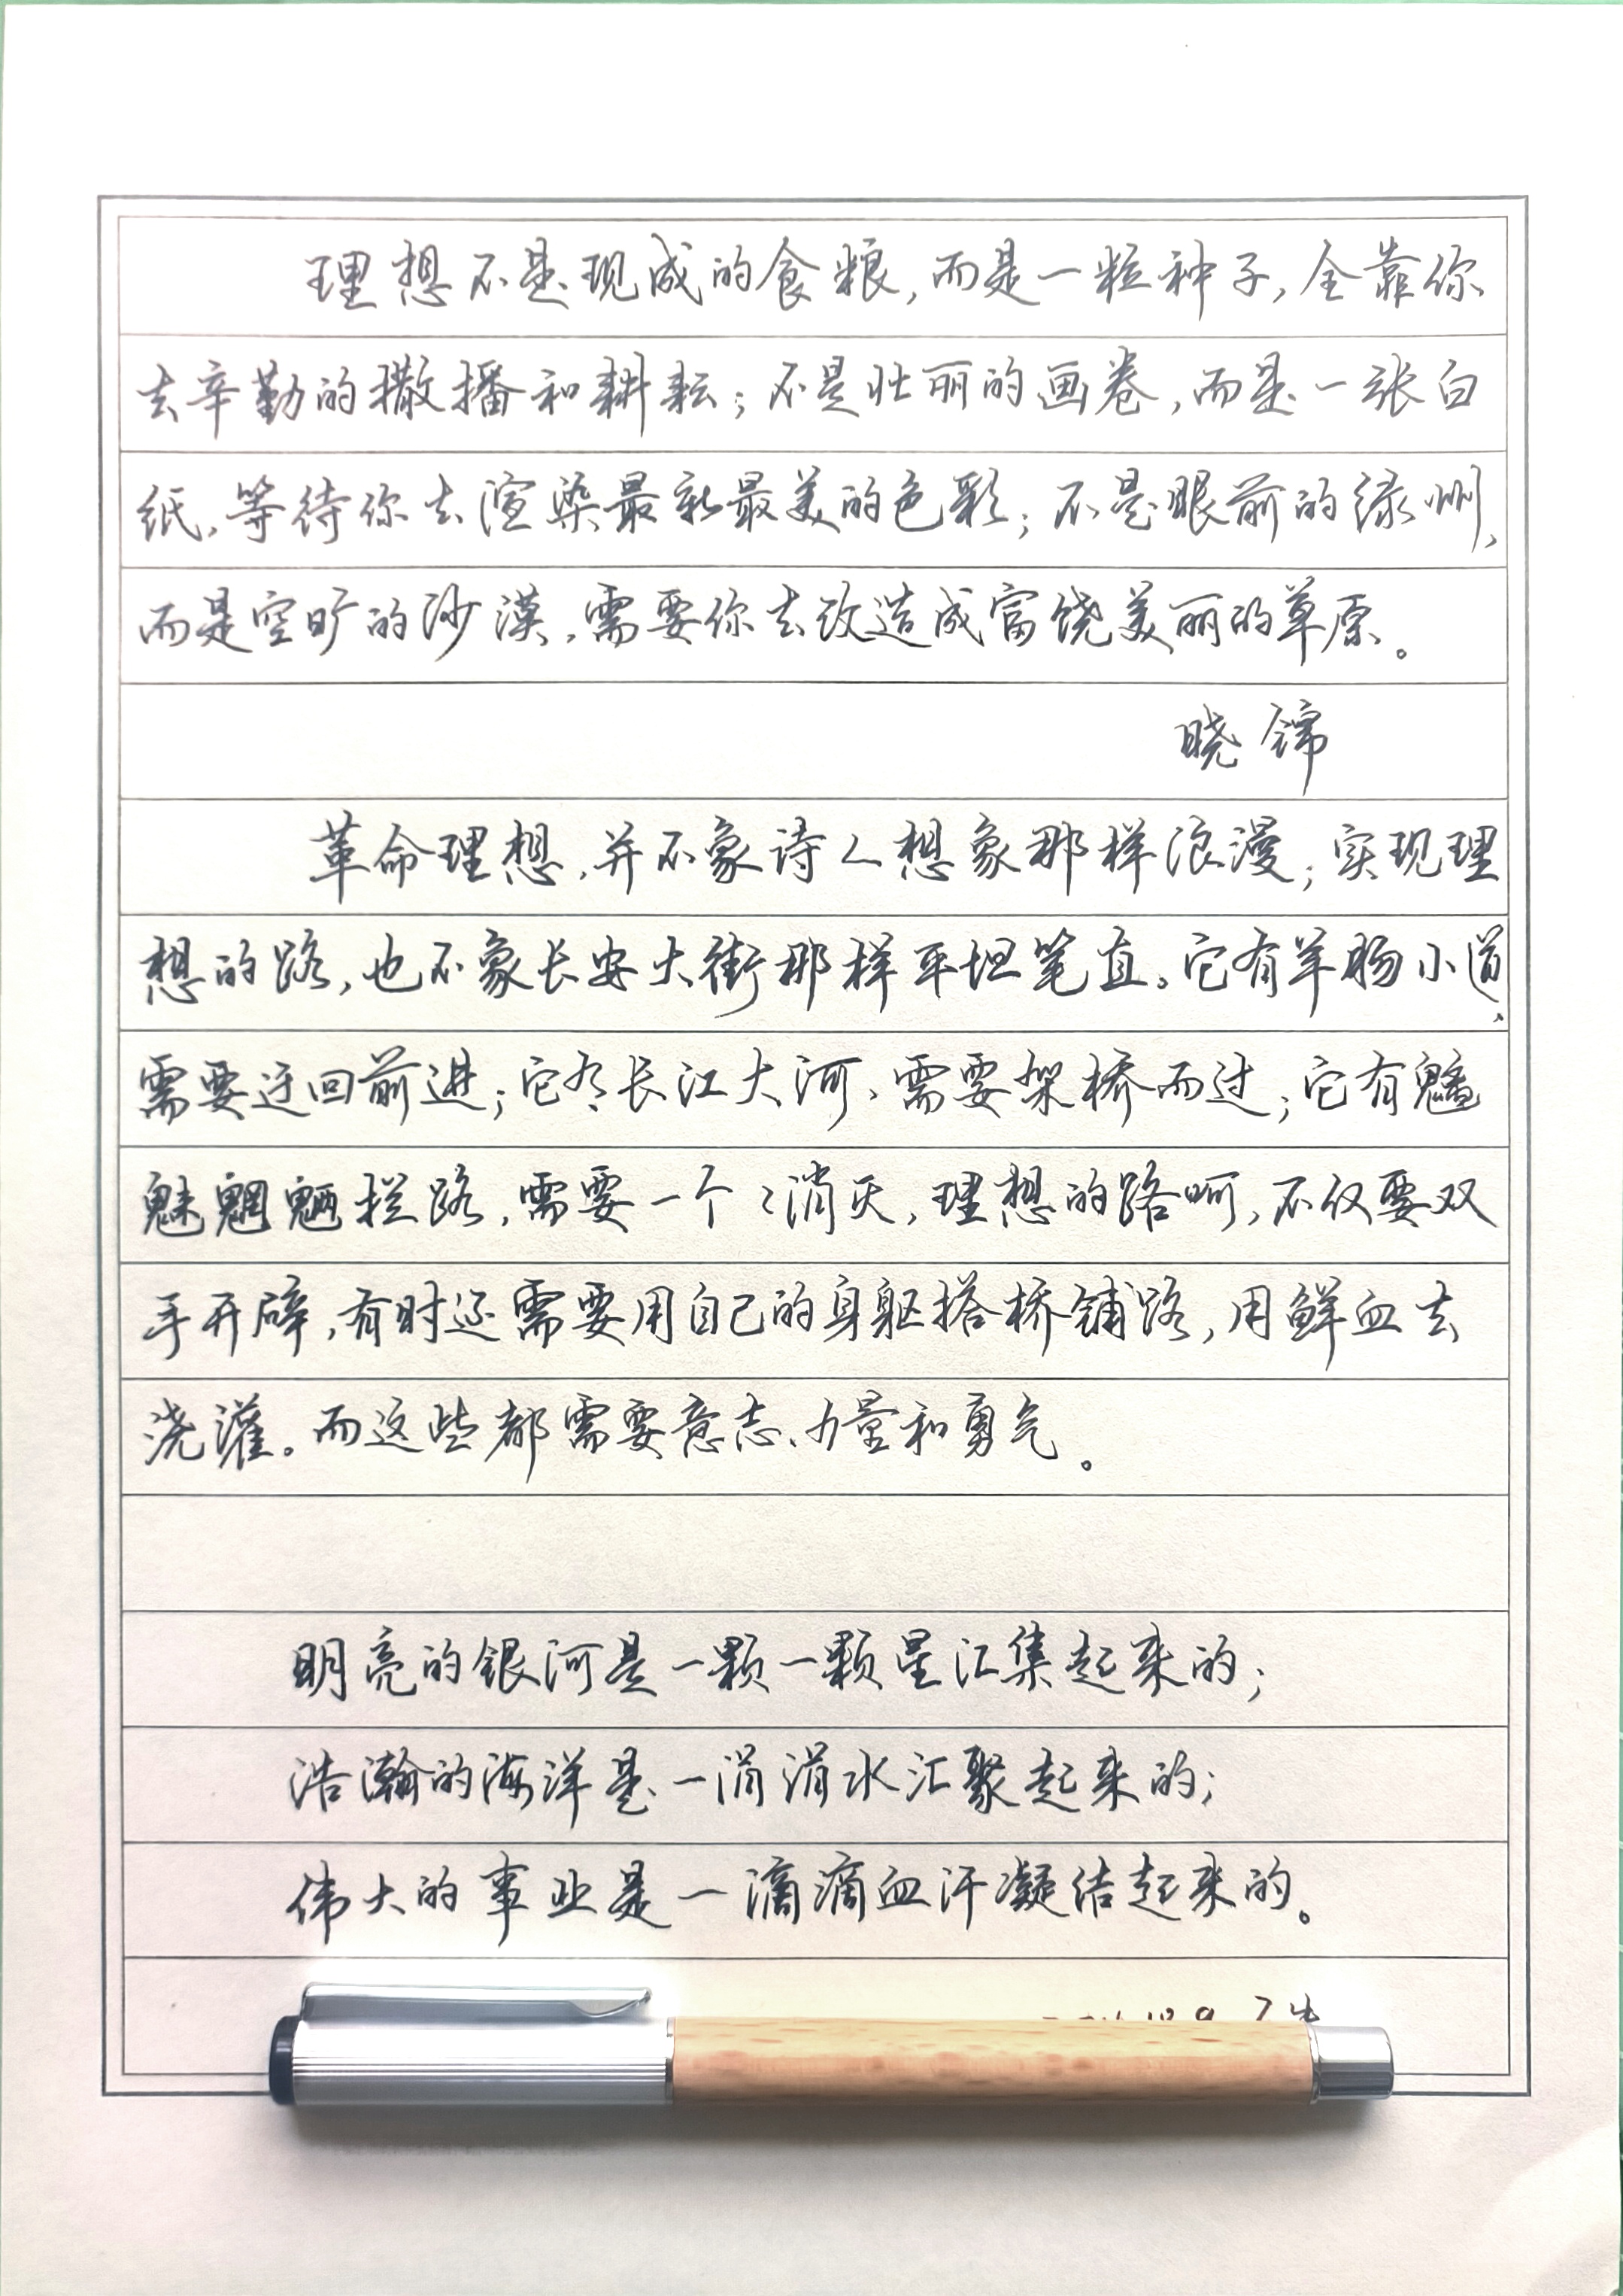 理想不是现成的食粮,而是一粒种子,全靠你
去辛勤的撒播和耕耘;不是壮丽的画卷,而是一张白
纸,等待你去渲染最新最美的色彩;不是眼前的绿洲,
而是空旷的沙漠,需要你去改造成富饶美丽的草原。
晓锦
革命理想,并不象诗人想象那样浪漫;实现理
想的路,也不象长安大街那样平坦笔直。它有羊肠小道,
需要迂回前进;它有长江大河,需要架桥而过;它有魑
魅魍魉拦路,需要一个々消灭,理想的路呵,不仅要双
手开辟,有时还需要用自己的身躯搭桥铺路,用鲜血去
浇灌。而这些都需要意志、力量和勇气。
明亮的银河是一颗一颗星汇集起来的;
浩瀚的海洋是一涓涓水汇聚起来的;
伟大的事业是一滴滴血汗凝结起来的。